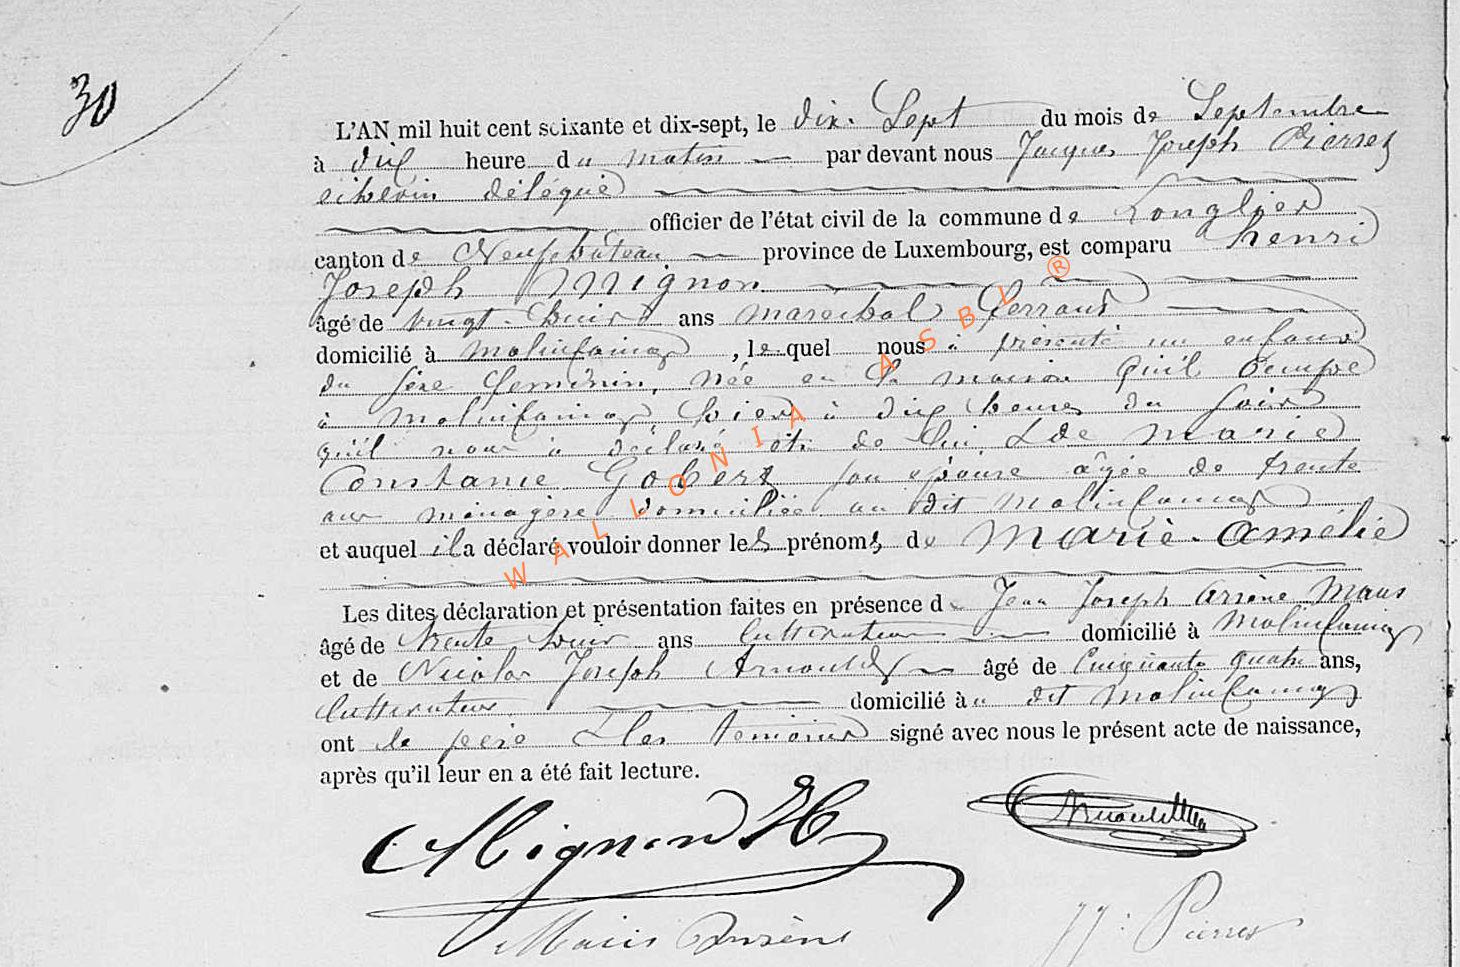 30
L'AN mil huit cent soixante et dix-sept, le dix-Sept du mois de Septembre
à dix heure du matin par devant nous Jacques Joseph Pierret
echevin délégué
officier de l'état civil de la commune de Longlier
canton de Neufchâteau province de Luxembourg, est comparu henri
Joseph Mignon
âgé de vingt-huit ans marechal ferrant
domicilié à Molinfaing, le quel nous à présenté un enfant
du sexe feminin, née en la maison qu'il occupe
à Molinfaing, hier à dix heures du soir
qu'il nous à déclaré etre de lui & de Marie
Constance Gobert son épouse âgée de trente
ans ménagère domiciliée au dit Molinfaing
et auquel il a déclaré vouloir donner les prénoms de Marie-Amélie
Les dites déclaration et présentation faites en présence de Jean Joseph Arsène Maus
âgé de trente deux ans cultivateur domicilié à Molinfaing
et de Nicolas Joseph Arnould âgé de Cinquante quatre ans,
cultivateur domicilié à u dit Molinfaing
ont le père & les temoins signé avec nous le présent acte de naissance,
après qu'il leur en a été fait lecture.
Mignon H
Arnould
Maus Arsène
JJ: Pierret
WALLONIA ASBL ®